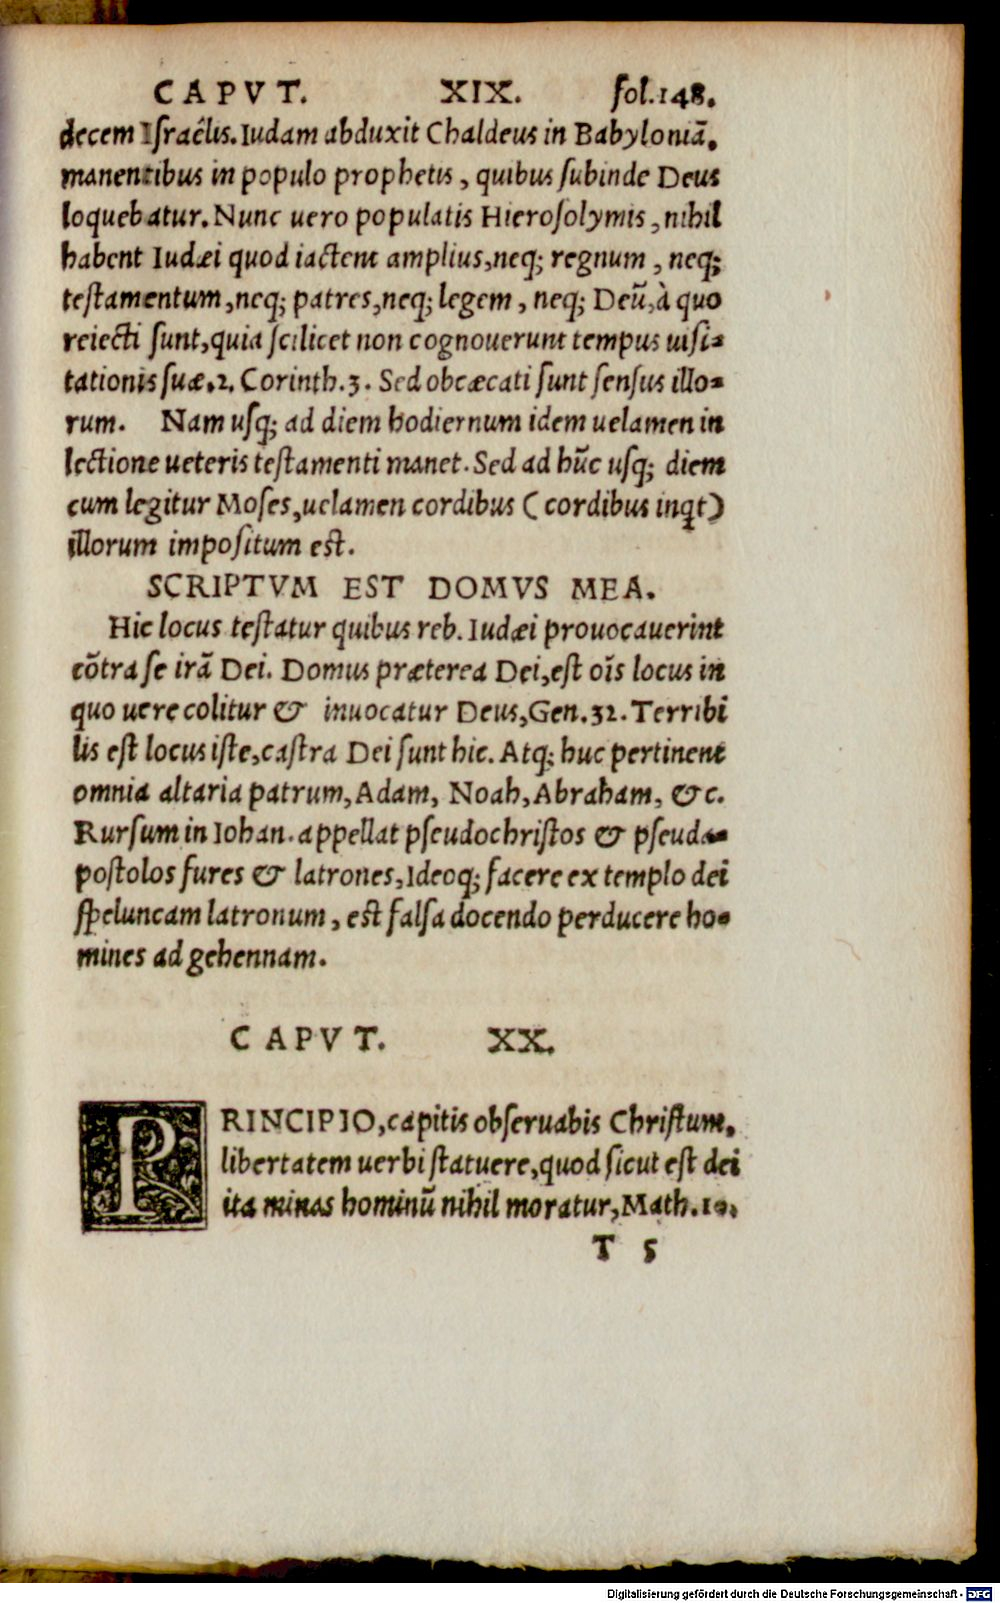 CAPVT. XIX. fol.148.
decem Iſraêlis. Iudam abduxit Chaldeus in Babyloniã.
manentibus in populo prophetis, quibus ſubinde Deus
loquebatur. Nunc uero populatis Hieroſolymis, nihil
habent Iudæi quod iactent amplius, neq; regnum, neq;
teſtamentum, neq; patres, neq; legem, neq; Deũ, à quo
reiecti ſunt, quia ſcilicet non cognouerunt tempus uiſi-
tationis ſuæ. 2. Corinth. 3. Sed obcæcati ſunt ſenſus illo-
rum. Nam uſq; ad diem hodiernum idem uelamen in
lectione ueteris teſtamenti manet. Sed ad hũc uſq; diem
cum legitur Moſes, uelamen cordibus (cordibus inq̃t)
illorum impoſitum eſt.
SCRIPTVM EST DOMVS MEA.
Hic locus teſtatur quibus reb. Iudæi prouocauerint
cõtra ſe irã Dei. Domus præterea Dei, eſt oĩs locus in
quo uere colitur & inuocatur Deus, Gen. 32. Terribi
lis eſt locus iſte, caſtra Dei ſunt hic. Atq; huc pertinent
omnia altaria patrum, Adam, Noah, Abraham, &c.
Rurſum in Iohan. appellat pſeudochriſtos & pſeuda-
poſtolos fures & latrones, Ideoq; facere ex templo dei
ſpeluncam latronum, eſt falſa docendo perducere ho-
mines ad gehennam.
CAPVT. XX.
PRINCIPIO, capitis obſeruabis Chriſtum,
libertatem uerbi ſtatuere, quod ſicut eſt dei
ita minas hominũ nihil moratur, Math. 10.
T 5
Digitalisierung gefördert durch die Deutsche Forschungsgemeinschaft - DFG